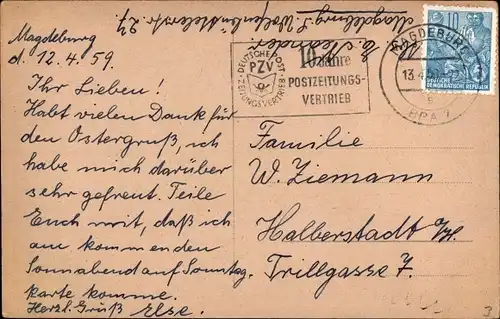 Magdeburg
d. 12.4.59.
Ihr Lieben!
Habt vielen Dank für
den Ostergruß, ich
habe mich darüber
sehr gefreut. Teile
Euch mit, daß ich
am kommenden
Sonnabend auf Sonntag
karte komme.
Herzl. Gruß Else.
Magdeburg S.
DEUTSCHE POST
PZV
ZEITUNGSVERTRIEB
10 Jahre
POSTZEITUNGS-
VERTRIEB
MAGDEBURG
13.4
BPA 7
10
DEUTSCHE
DEMOKRATISCHE REPUBLIK
Familie
W. Ziemann
Halberstadt a/H.
Trillgasse 7.